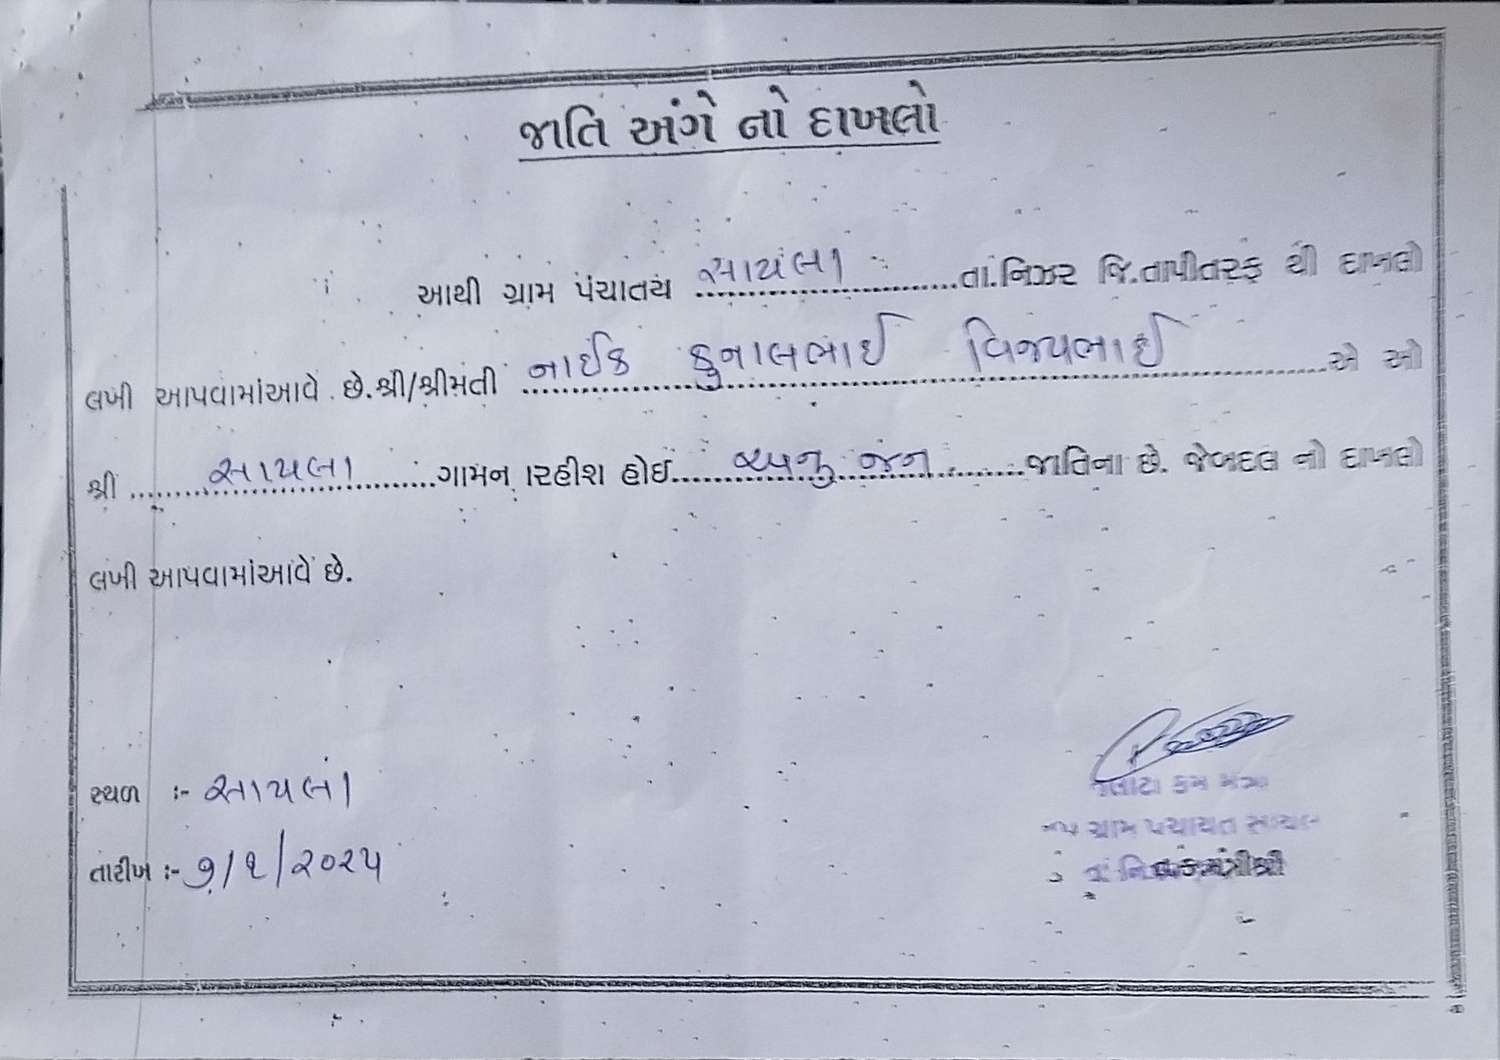 જાતિ અંગે નો દાખલો
આથી ગ્રામ પંચાતય સાયલા તા.નિઝર જિ.તાપીતરફ થી દાખલો
લખી આપવામાંઆવે છે.શ્રી/શ્રીમતી નાઈક કુનાલભાઈ વિજયભાઈ એ ઓ
શ્રી સાયલા ગામન ારહીશ હોઈ અનુ જન જાતિના છે. જેબદલ નો દાખલો
લખી આપવામાંઆવે છે.
સ્થળ :- સાયલા
તલાટી કમ મંત્રી
ગ્રામ પંચાયત સાયલા
તારીખ :- ૭/૧/૨૦૨૫